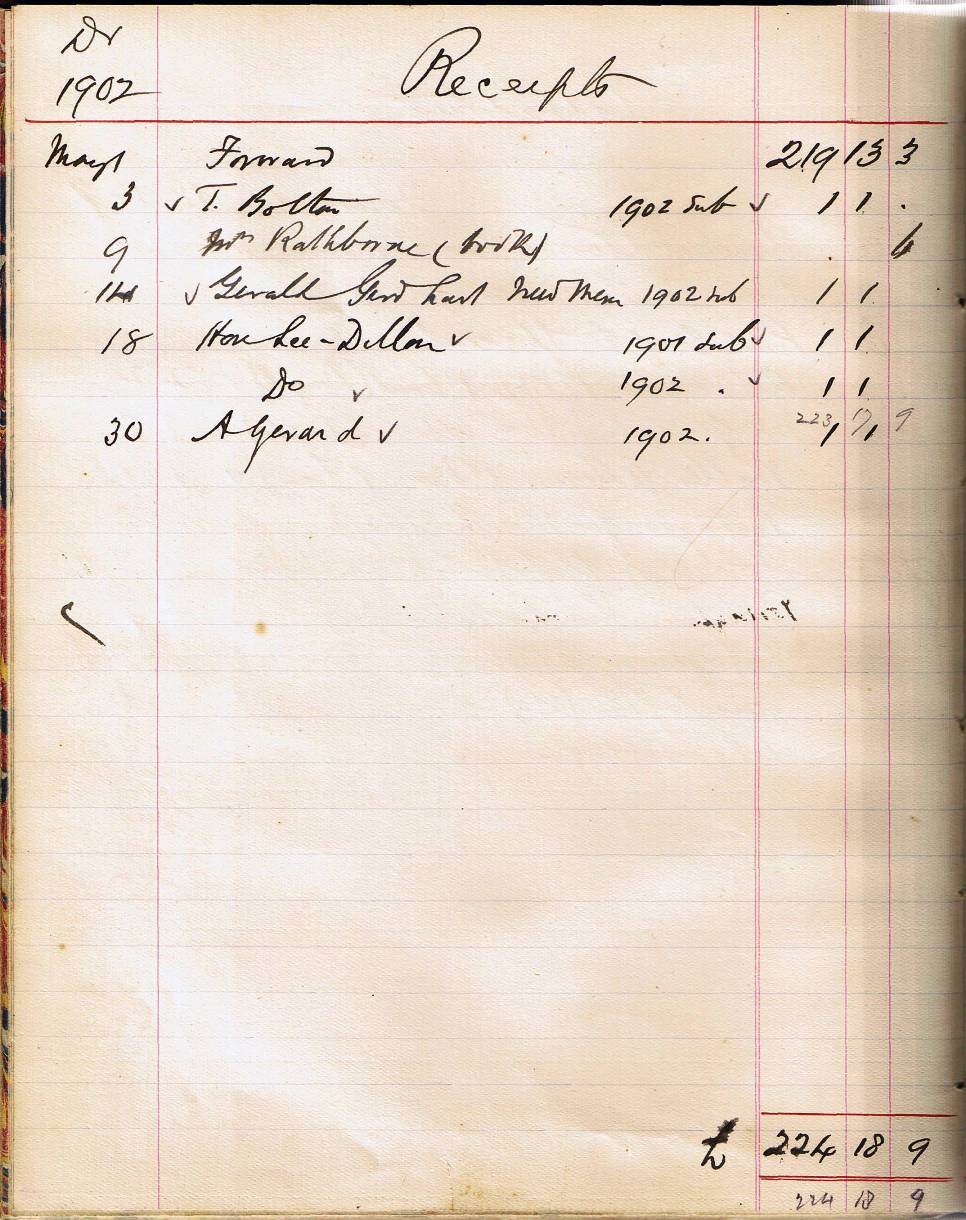 Dr
1902 Receipts
May 1 Forward 219 13 3
3 ✓ T. Bolton 1902 Sub ✓ 1 1 .
9 Mrs Rathborne (book) 6
14 ✓ Gerald Gerd hart New Mem 1902 sub 1 1
18 Hon Lee-Dillon ✓ 1901 Sub ✓ 1 1
Do ✓ 1902 . ✓ 1 1
223 17 9
30 A Gerard ✓ 1902. 1 1
£ 224 18 9
224 18 9